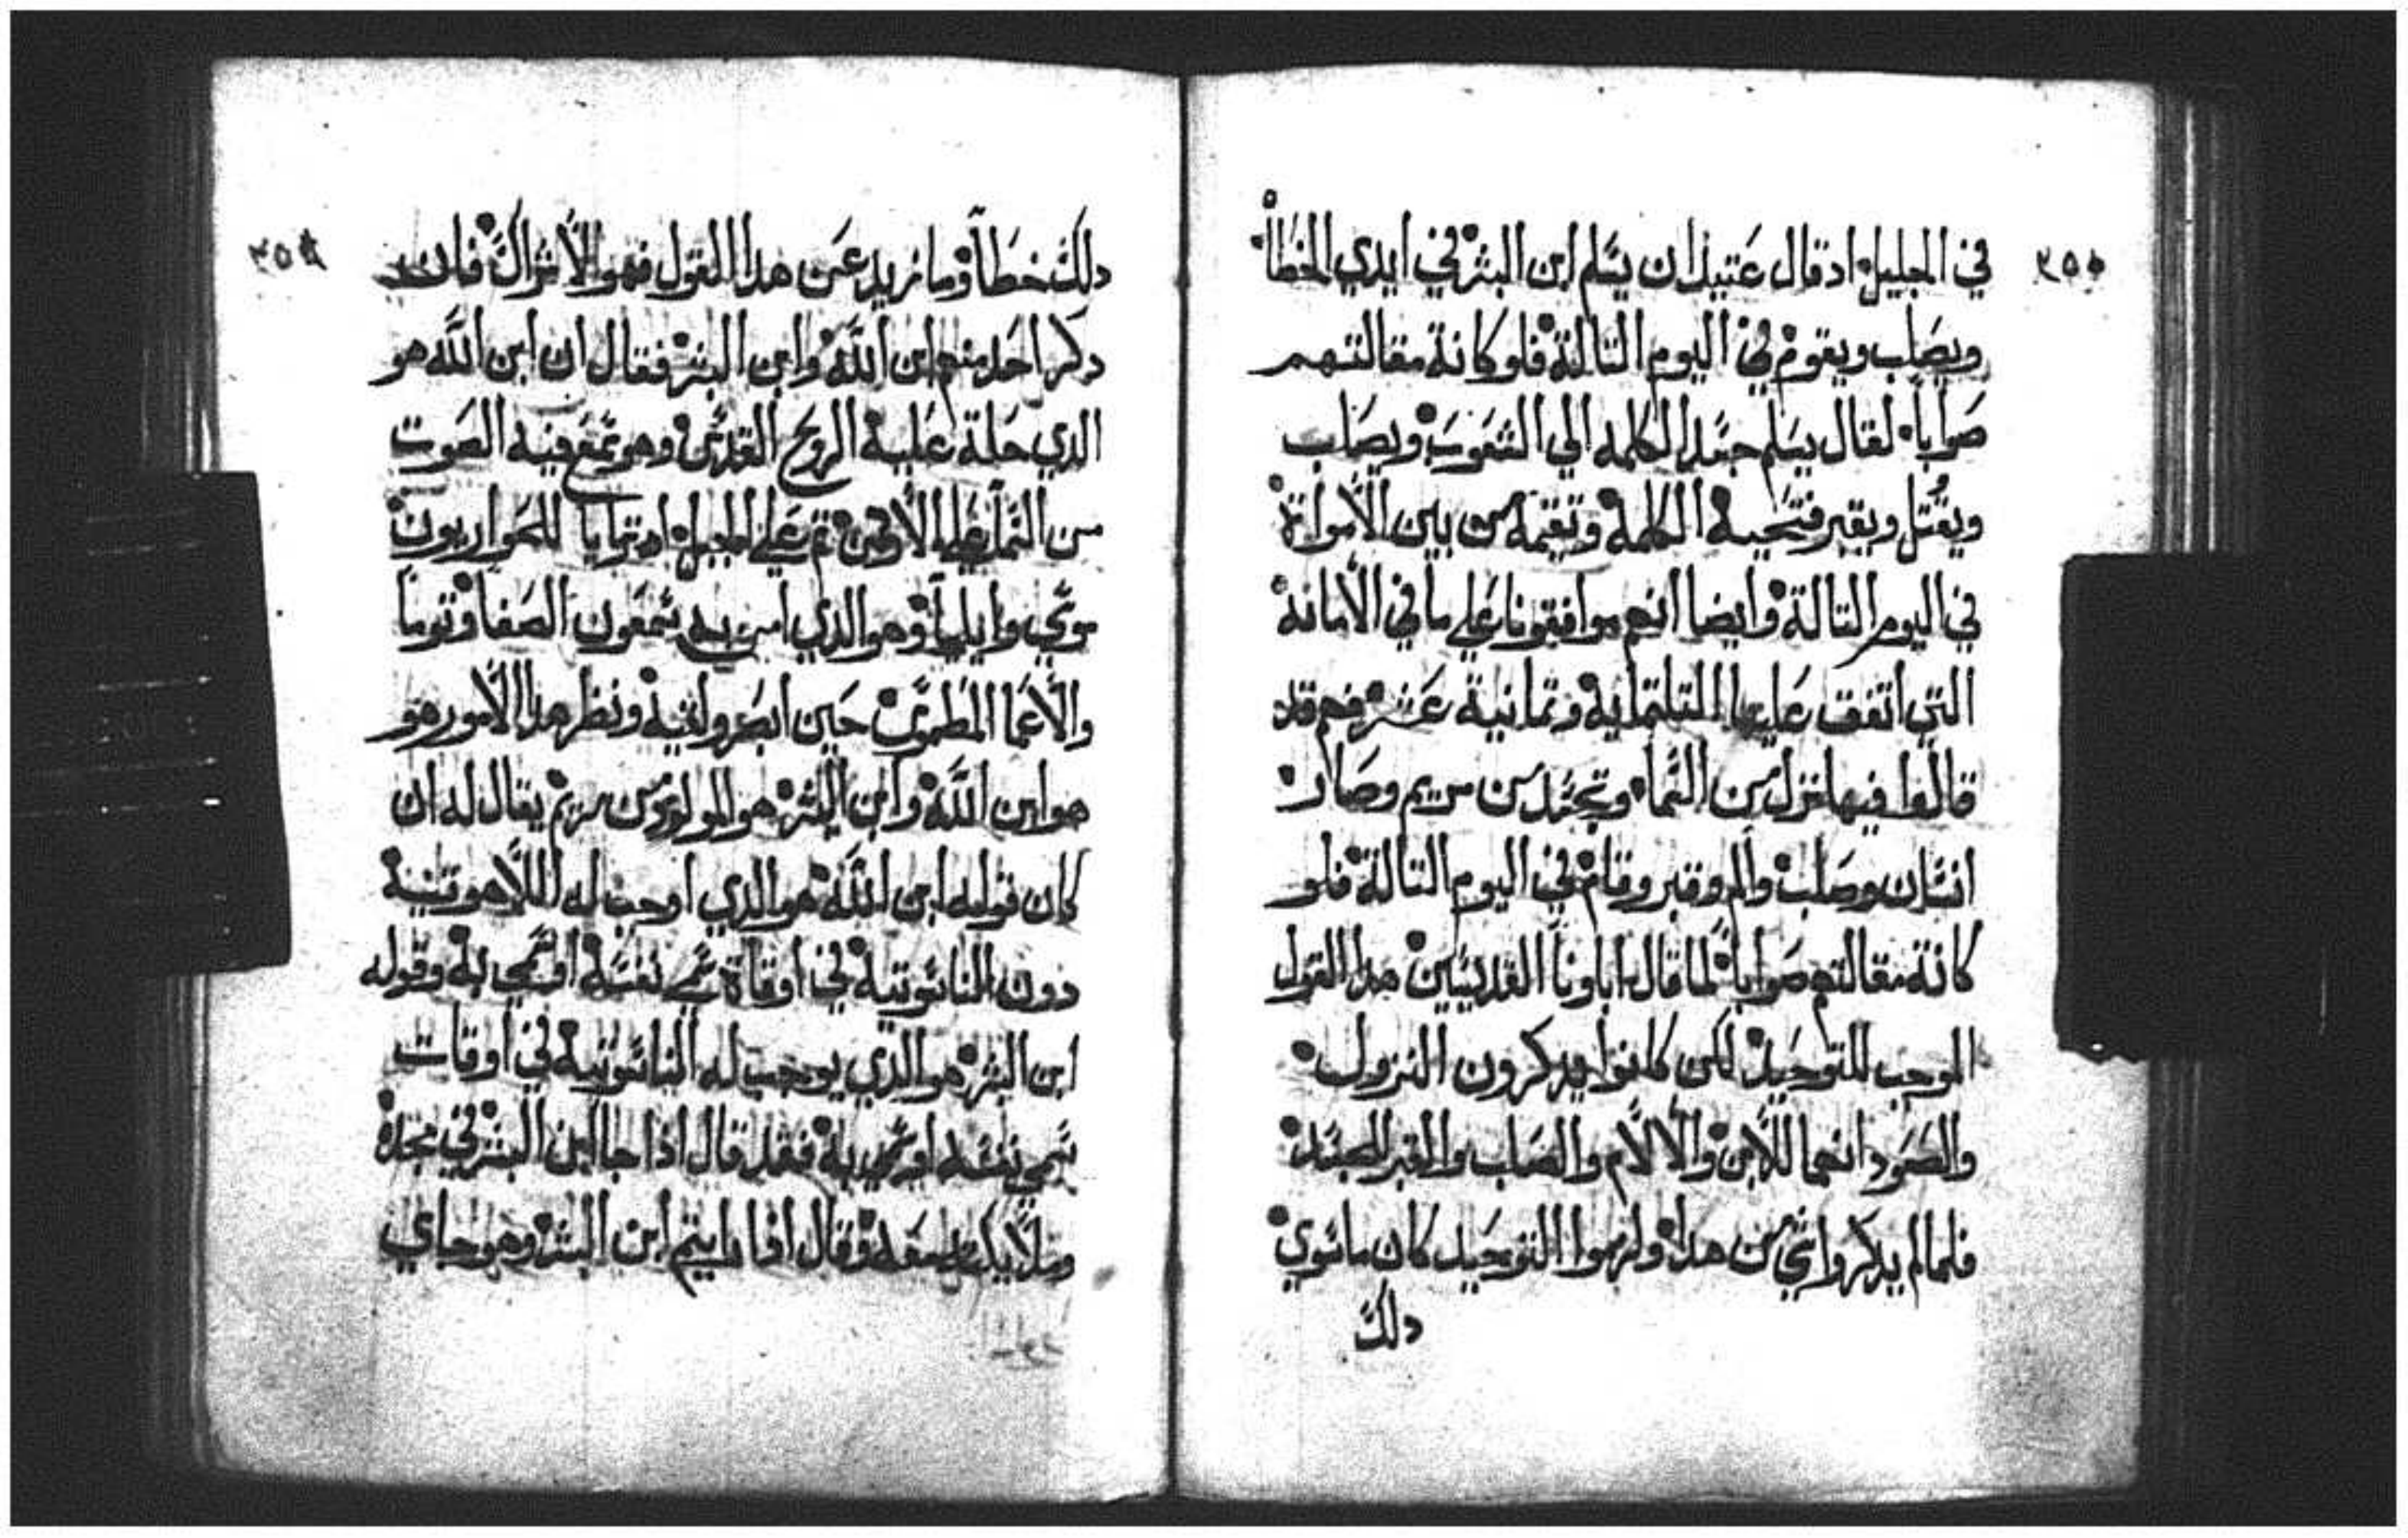 ٣٥٥
في الجليل ادقال عتيدان يسلم ابن البشر في ايدي الخطاه
ويصلب ويقوم في اليوم التالته فلو كانة مقالتهم
صواباً لقال يسلم جسد الكلمه الي الشعوب ويصلب
ويقتل ويقبر فتحييه الكلمة وتقيمه من بين الاموات
في اليوم التالتة وايضا انهم موافقونا علي ما في الامانة
التي اتفقت عليها التلتماية وتمانية عشر فهم قد
قالوا فيها نزل من السما وتجسد من مريم وصار
انسان وصلب والم وقبر وقام في اليوم التالتة فلو
كانة مقالتهم صواباً لما قال اباونا القديسين هدا القول
الموجب للتوحيد لكن كانوا يدكرون النزول
والصعود انهما للابن والالام والصلب والقبر للجسد
فلما لم يدكروا شي من هدا ولزموا التوحيد كان ماسوي
دلك
٣٥٦
دلك خطاً وما نريد عن هدا القول فهو الاشراك فان
دكر احد منهم ابن الله وابن البشر فقال ان ابن الله هو
الدي حلة عليه الروح القدس وهو سمع فيه الصوت
من السما علي الاردن تم علي الجبل اد ترايا للحواريون
موسي وايليا وهو الدي امن به شمعون الصفا وتوما
والاعما المطموس حين ابصر ولقيه ونظر هدا الامور هو
هو ابن الله وابن البشر هو المولود من مريم يقال له ان
كان قوله ابن الله هو الدي اوجب له اللاهوتية
دون الناسوتية في اوقاة سمي نفسه اوسمي به وقوله
ابن البشر هو الدي يوجب له الناسوتية في اوقات
سمي نفسه اوسمي به فقد قال ادا جا ابن البشر في مجده
وملايكته معه وقال ادا رايتم ابن البشر وهو جاي